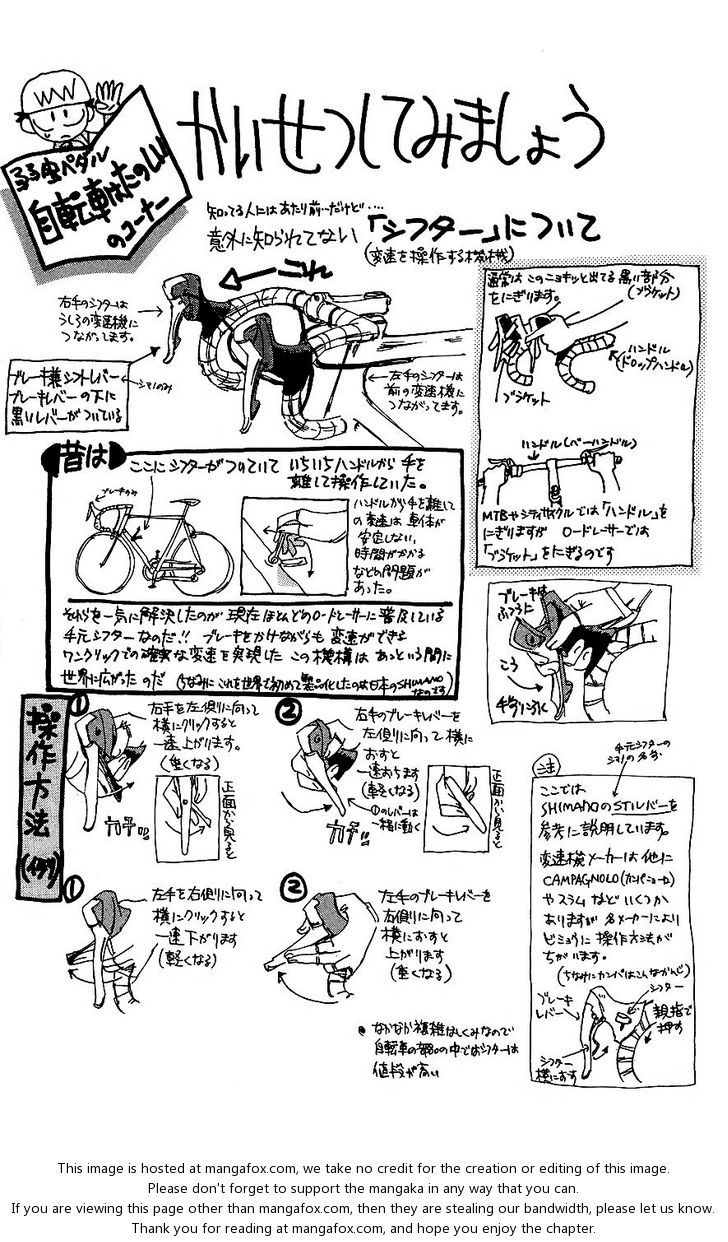 かいせつしてみましょう
弱虫ペダル
自転車はたのしい
のコーナー
知ってる人にはあたり前…だけど…
意外に知られてない「シフター」について
(変速を操作する機械)
これ
右手のシフターは
うしろの変速機に
つながってます。
ブレーキ兼シフトレバー
ブレーキレバーの下に
黒いレバーがついている
シマノのみ
左手のシフターは
前の変速機に
つながってます。
通常はこのニョキッと出てる黒い部分
(ブラケット)
をにぎります。
ハンドル
(ドロップハンドル)
ブラケット
ハンドル(バーハンドル)
MTBやシティサイクルでは「ハンドル」を
にぎりますが ロードレーサーでは
「ブラケット」をにぎるのです
昔は
ここにシフターがついていて いちいちハンドルから手を
離して操作していた。
ブレーキのみ
ハンドルから手を離して
の変速は 車体が
安定しない、
時間がかかる
などの問題が
あった。
それらを一気に解決したのが 現在ほとんどのロードレーサーに普及している
手元シフターなのだ!! ブレーキをかけながらも 変速ができる
ワンクリックでの確実な変速を実現した この機構は あっという間に
世界に広がったのだ (ちなみに これを世界で初めて製品化したのは日本のSHIMANO
なのです)
ブレーキは
ふつうに
こう
手前に引く
操作方法
(例)
①
右手を左側に向って
横にクリックすると
一速上がります。
(重くなる)
カチ!!
正面から見ると
②
右手のブレーキレバーを
左側に向って 横に
おすと
一速おちます
(軽くなる)
①のレバーは
一緒に動く
カチ!!
正面から見ると
①
左手を右側に向って
横にクリックすると
一速下がります
(軽くなる)
②
左手のブレーキレバーを
右側に向って
横におすと
上がります
(重くなる)
なかなか複雑なしくみなので
自転車の部品の中ではシフターは
値段が高い
注
手元シフターの
シマノの名称
ここでは
SHIMANOのSTIレバーを
参考に説明しています。
変速機メーカーは他に
CAMPAGNOLO(カンパニョーロ)
やスラムなどいくつか
ありますが 各メーカーにより
ビミョウに操作方法が
ちがいます。
(ちなみにカンパはこんなかんじ)
ブレーキ
レバー
シフター
親指で
押す
シフター
横におす
This image is hosted at mangafox.com, we take no credit for the creation or editing of this image.
Please don't forget to support the mangaka in any way that you can.
If you are viewing this page other than mangafox.com, then they are stealing our bandwidth, please let us know.
Thank you for reading at mangafox.com, and hope you enjoy the chapter.